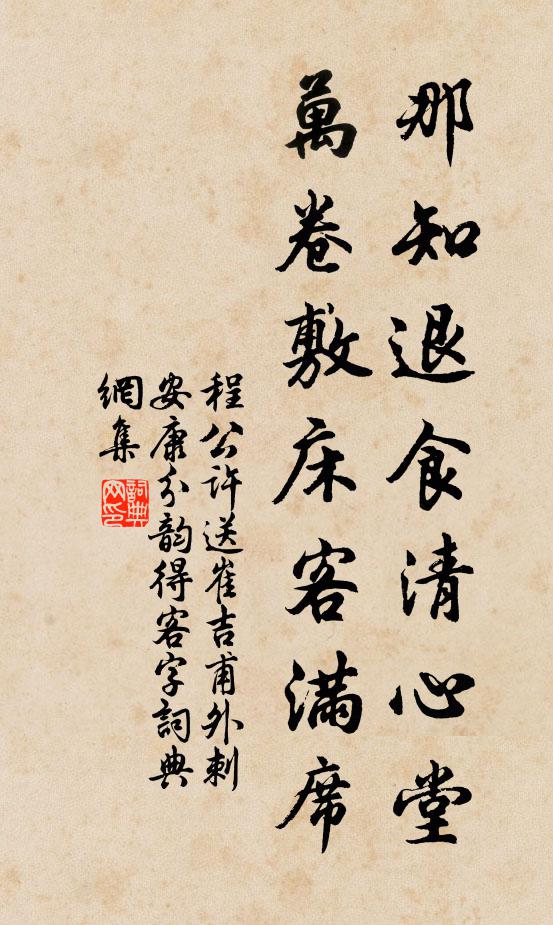 那知退食清心堂
萬卷敷床客滿席
程公許送崔吉甫外刺
安康分韵得客字詞典
網集
詞典網印